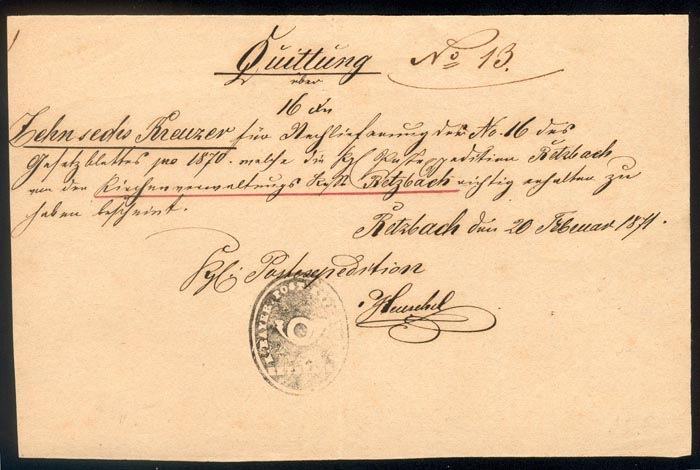 Quittung No 13.
über
16 Kr
Zehn sechs Kreuzer für Nachlieferung der No. 16 des
Gesetzblattes pro 1870. welche die Kgl Postexpedition Retzbach
von der Kirchenverwaltungs Retzbach richtig erhalten zu
haben bescheint.
Retzbach den 20 Februar 1871.
Kgl. Postexpedition
Heuschel
K. BAYER. POST